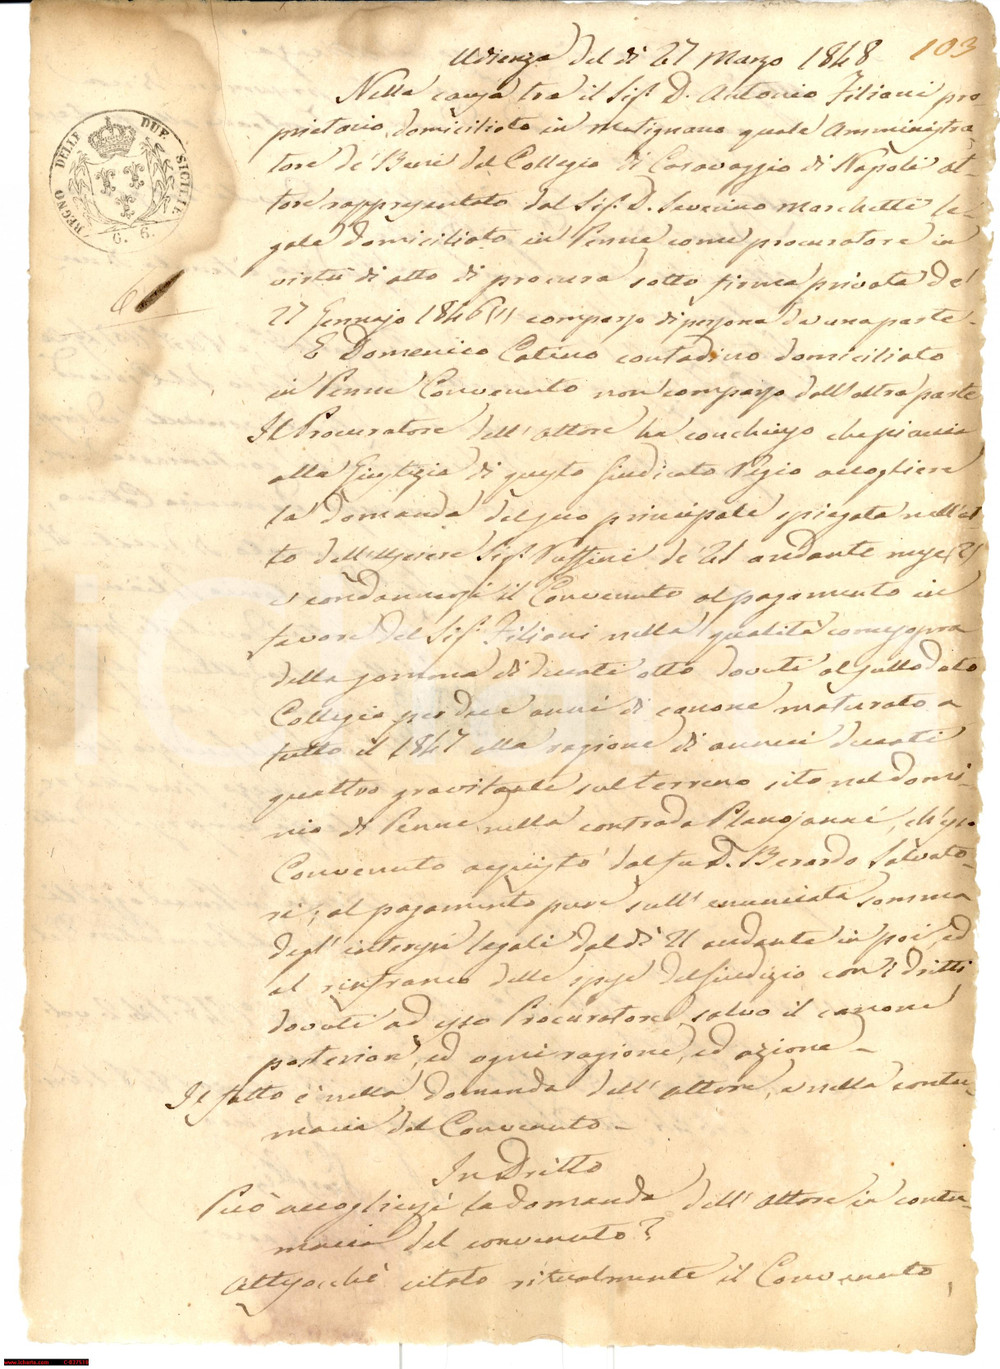 Udienza del dì 27 Marzo 1848
103
REGNO DELLE DUE SICILIE
G. 6.
6
Nella causa tra il Sig.r D. Antonio Filiani pro-
prietario domiciliato in Mutignano quale Amministra-
tore de' Beni del Collegio di Caravaggio di Napoli at-
tore rappresentato dal Sig.r D. Severino Marchetti le-
gale domiciliato in Penne come procuratore in
virtù di atto di procura sotto firma privata de'
27 Gennajo 1846 comparso di persona da una parte-
E Domenico Catino contadino domiciliato
in Penne Convenuto non comparso dall'altra parte
Il Procuratore dell'Attore ha conchiuso che piaccia
alla Giustizia di questo Giudicato Regio accogliere
la domanda del suo principale spiegata nell'at-
to dell'Usciere Sig.r Ruffini de' 21 andante mese
e condannarsi il Convenuto al pagamento in
favore del Sig.r Filiani nella qualità come sopra
della somma di ducati otto dovuti al sullodato
Collegio per due anni di canone maturato a
tutto il 1847 alla ragione di annui ducati
quattro gravitante sul terreno sito nel domi-
nio di Penne, nella contrada Planojanni, ch'esso
Convenuto acquistò dal fu D. Berardo Salvato-
ri; al pagamento pure sull'enunciata somma
degl'interessi legali dal dì 21 andante in poi, ed
al rinfranco delle spese del Giudizio con i dritti
dovuti ad esso Procuratore, salvo il canone
posteriore, ed ogni ragione, ed azione-
Il fatto è nella domanda dell'attore, e nella contu-
macia del Convenuto-
In Dritto
Può accogliersi la domanda dell'Attore in contu-
macia del convenuto?
Attesocchè citato ritualmente il Convenuto,
www.lcharta.com